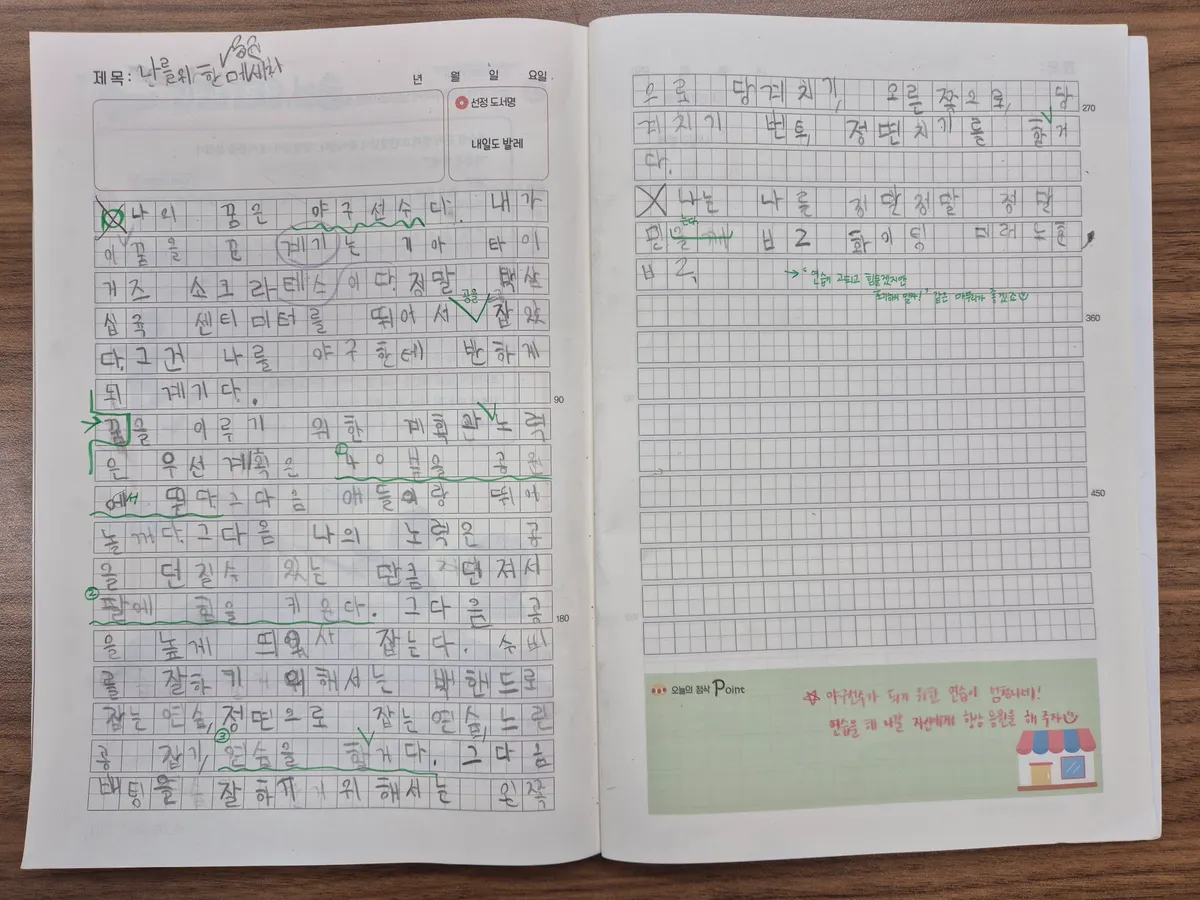 제 목: 나를위한 메세지
년 월 일 요일
선정 도서명
내일도 발레
나의 꿈은 야구선수다. 내가
이꿈을 꾼 계기는 기아 타이
거즈 소크라테스이다. 정말 백산
십육 센티미터를 뛰어서 잡았
공을
다.그건 나를 야구한테 반하게
된 계기다.
꿈을 이루기 위한 계획관노력
은 우선 계획은 40분을 공원
①
에서 뛴다그다음 애들이랑 뛰어
놀꺼다.그다음 나의 노력은 공
을 던질수 있는 만큼 던져서
② 팔에 힘을 키운다. 그다음 공
180
을 높게 띄워사 잡는다. 수비
를 잘하기 위해서는 백핸드로
잡는연습,정면으로 잡는연습,느린
공 잡기, 연습을 할거다. 그다음
③
배팅을 잘하기 위해서는 왼쪽
90
으로 당겨치기, 오른쪽으로, 당
270
겨치기 번트, 정면치기를 할거
다.
나는 나를 정말정말 정말
믿을께 화이팅 미래
는다
→ "연습이 고되고 힘들겠지만
포기하지 말자!" 같은 마무리가 좋겠죠
360
450
오늘의 첨삭 Point
☆ 야구선수가 되기 위한 연습이 엄청나네!
연습을 해 나갈 자신에게 항상 응원을 해 주자